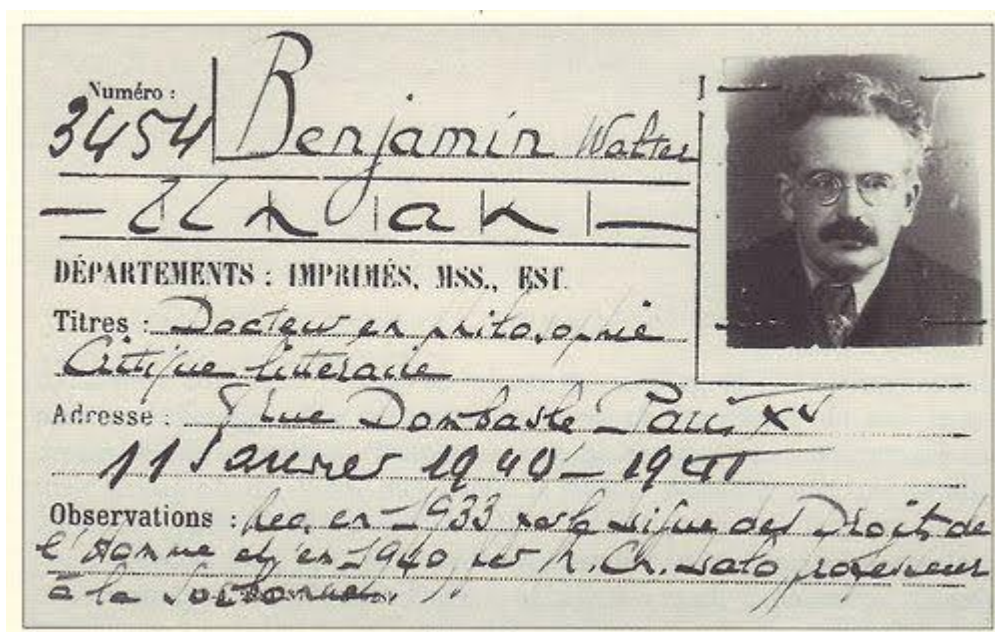 Numéro :
3454 Benjamin Walter
— Un | an | —
DÉPARTEMENTS : IMPRIMÉS, MSS., EST.
Titres : Docteur en philosophie
Critique littéraire
Adresse : rue Dombasle Paris XV
11 Janvier 1940 - 1941
Observations : Rec. en 1933 par la Ligue des Droits de
l'Homme et en 1940 par professeur
à la Sorbonne.